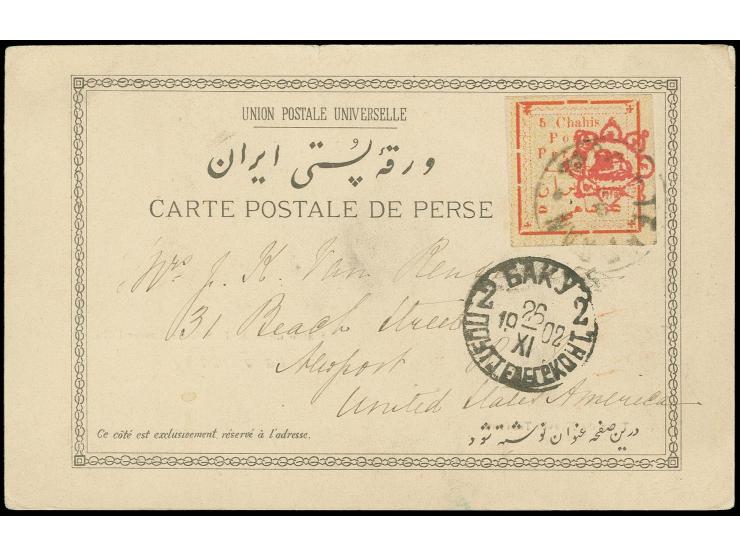 UNION POSTALE UNIVERSELLE
ورقهٔ پُستی ایران
CARTE POSTALE DE PERSE
5 Chahis
Mrs J. K. Van
31 Beach Street
Newport
United States America
2 БАКУ 2
26
19 02
XI
Ce côté est exclusivement réservé à l'adresse.
درین صفحه عنوان نوشته شود